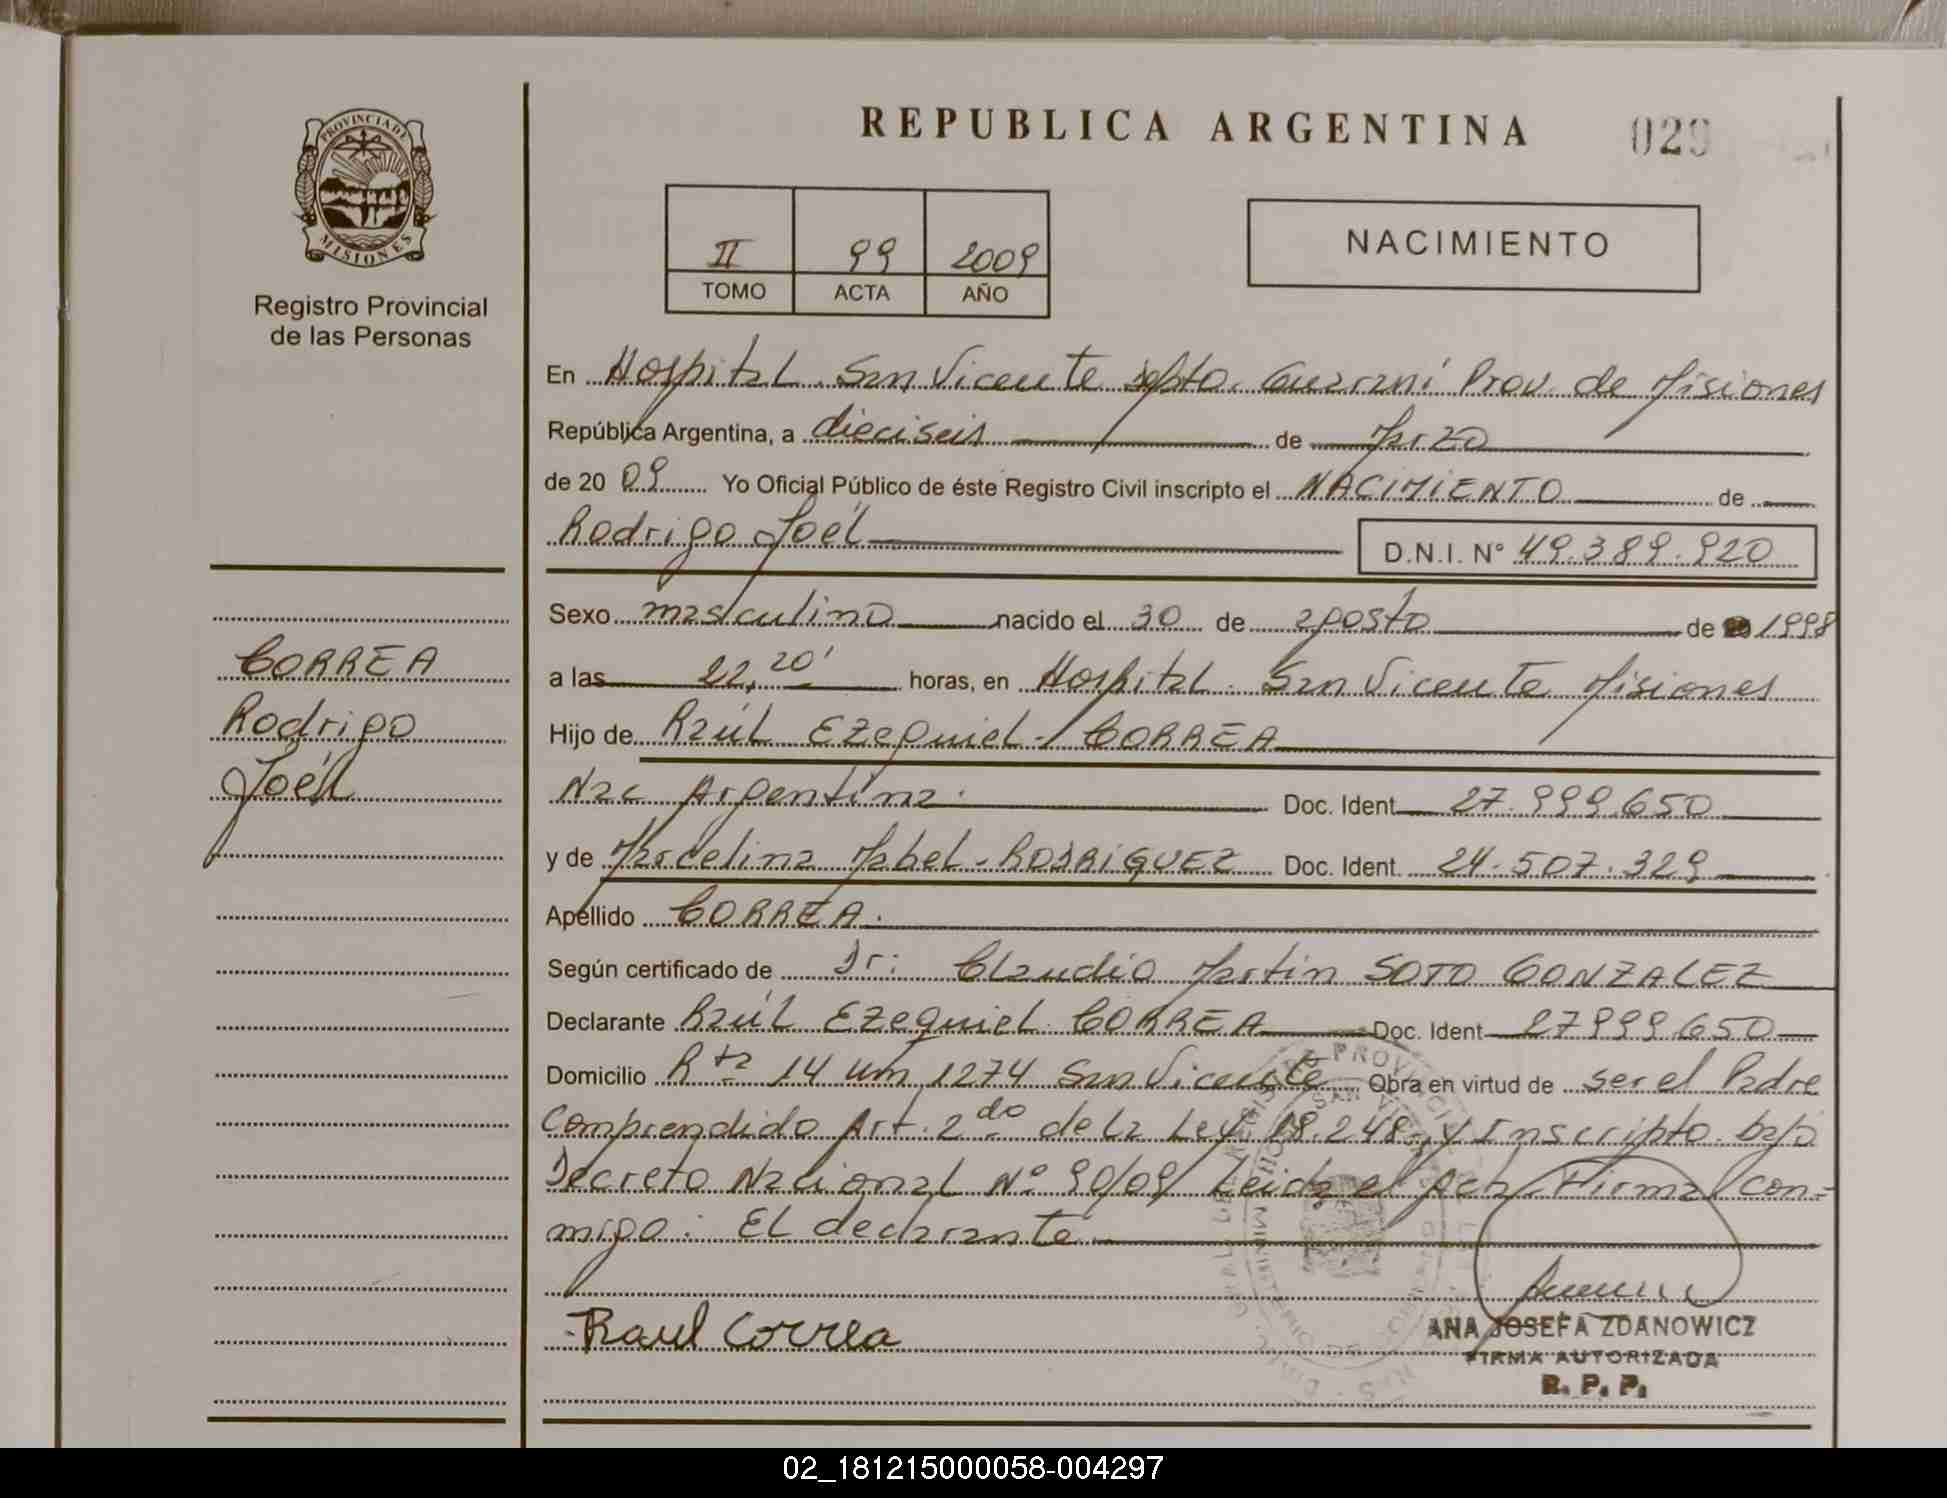 REPUBLICA ARGENTINA
029
PROVINCIA DE
MISIONES
Registro Provincial
de las Personas
II 99 2009
TOMO ACTA AÑO
NACIMIENTO
En Hospital San Vicente Dpto. Guaraní Prov. de Misiones
República Argentina, a dieciseis de Marzo
de 2009 Yo Oficial Público de éste Registro Civil inscripto el NACIMIENTO de
Rodrigo Joél D.N.I. N° 49.389.920
Sexo masculino nacido el 30 de agosto de 1998
a las 22,20' horas, en Hospital San Vicente Misiones
Hijo de Raúl Ezequiel - CORREA
Nac Argentina. Doc. Ident 27.999.650
y de Marcelina Mabel - RODRIGUEZ Doc. Ident. 24.507.329
Apellido CORREA.
Según certificado de Dr: Claudio Martín SOTO GONZALEZ
Declarante Raúl Ezequiel CORREA Doc. Ident 27999.650
Domicilio Rta 14 km 1274 San Vicente Obra en virtud de ser el Padre
Comprendido Art. 2do de la Ley 18.248-, y Inscripto bajo
Decreto Nacional N° 90/09/ Leida el Acta, Firma con-
migo: El declarante
CORREA
Rodrigo
Joél
Raul Correa
ANA JOSEFA ZDANOWICZ
FIRMA AUTORIZADA
R. P. P.
02_181215000058-004297